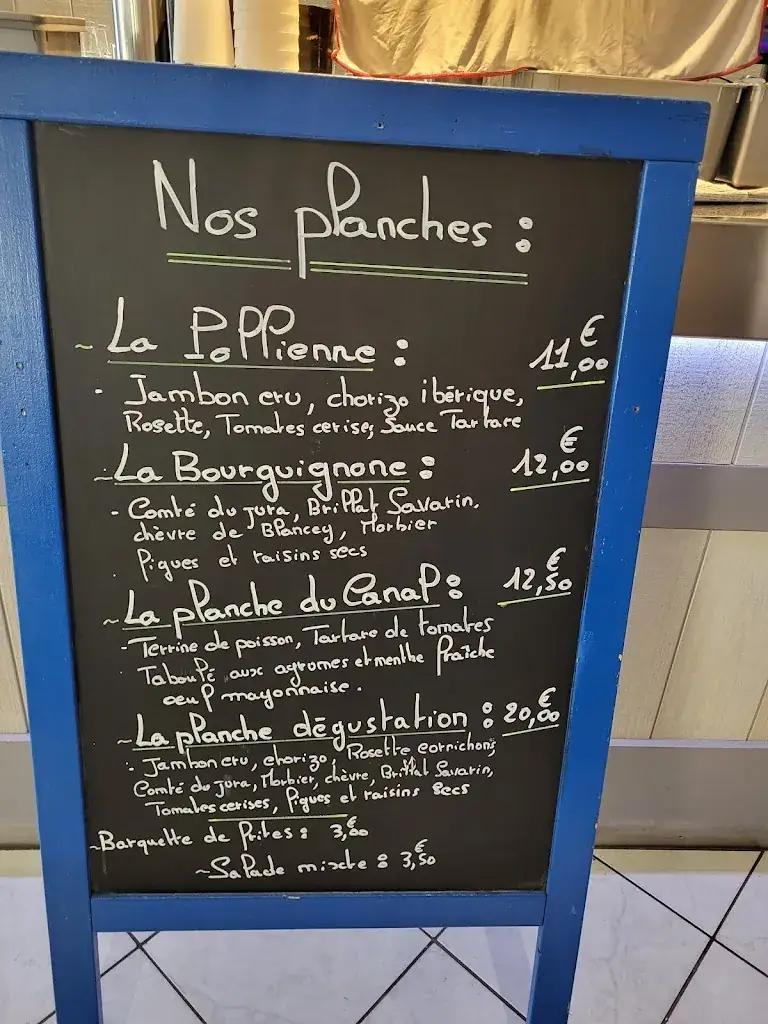 Nos planches :
~ La Pollienne : 11,00€
- Jambon cru, chorizo ibérique,
Rosette, Tomates cerise, Sauce Tartare
~ La Bourguignone : 12,00€
- Comté du jura, Brillat Savarin,
chèvre de Blancey, Morbier
Figues et raisins secs
~ La planche du Canal : 12,50€
- Terrine de poisson, Tartare de tomates
Taboulé aux agrumes et menthe fraîche
oeuf mayonnaise.
~ La planche dégustation : 20,00€
- Jambon cru, chorizo, Rosette cornichons
Comté du jura, Morbier, chèvre, Brillat Savarin,
Tomates cerises, Figues et raisins secs
~ Barquette de frites : 3,00€
~ Salade mixte : 3,50€